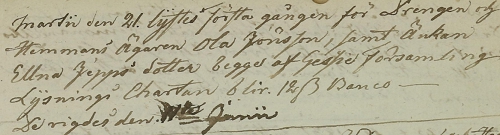 Martii den 21. lystes första gången för Drengen och
Hemmans Ägaren Ola Jönsson, samt Änkan
Ellna Jepps dotter begge af Gessie Församling
Lysnings Chartan blir. 12 ß Banco —
de vigdes den Junii